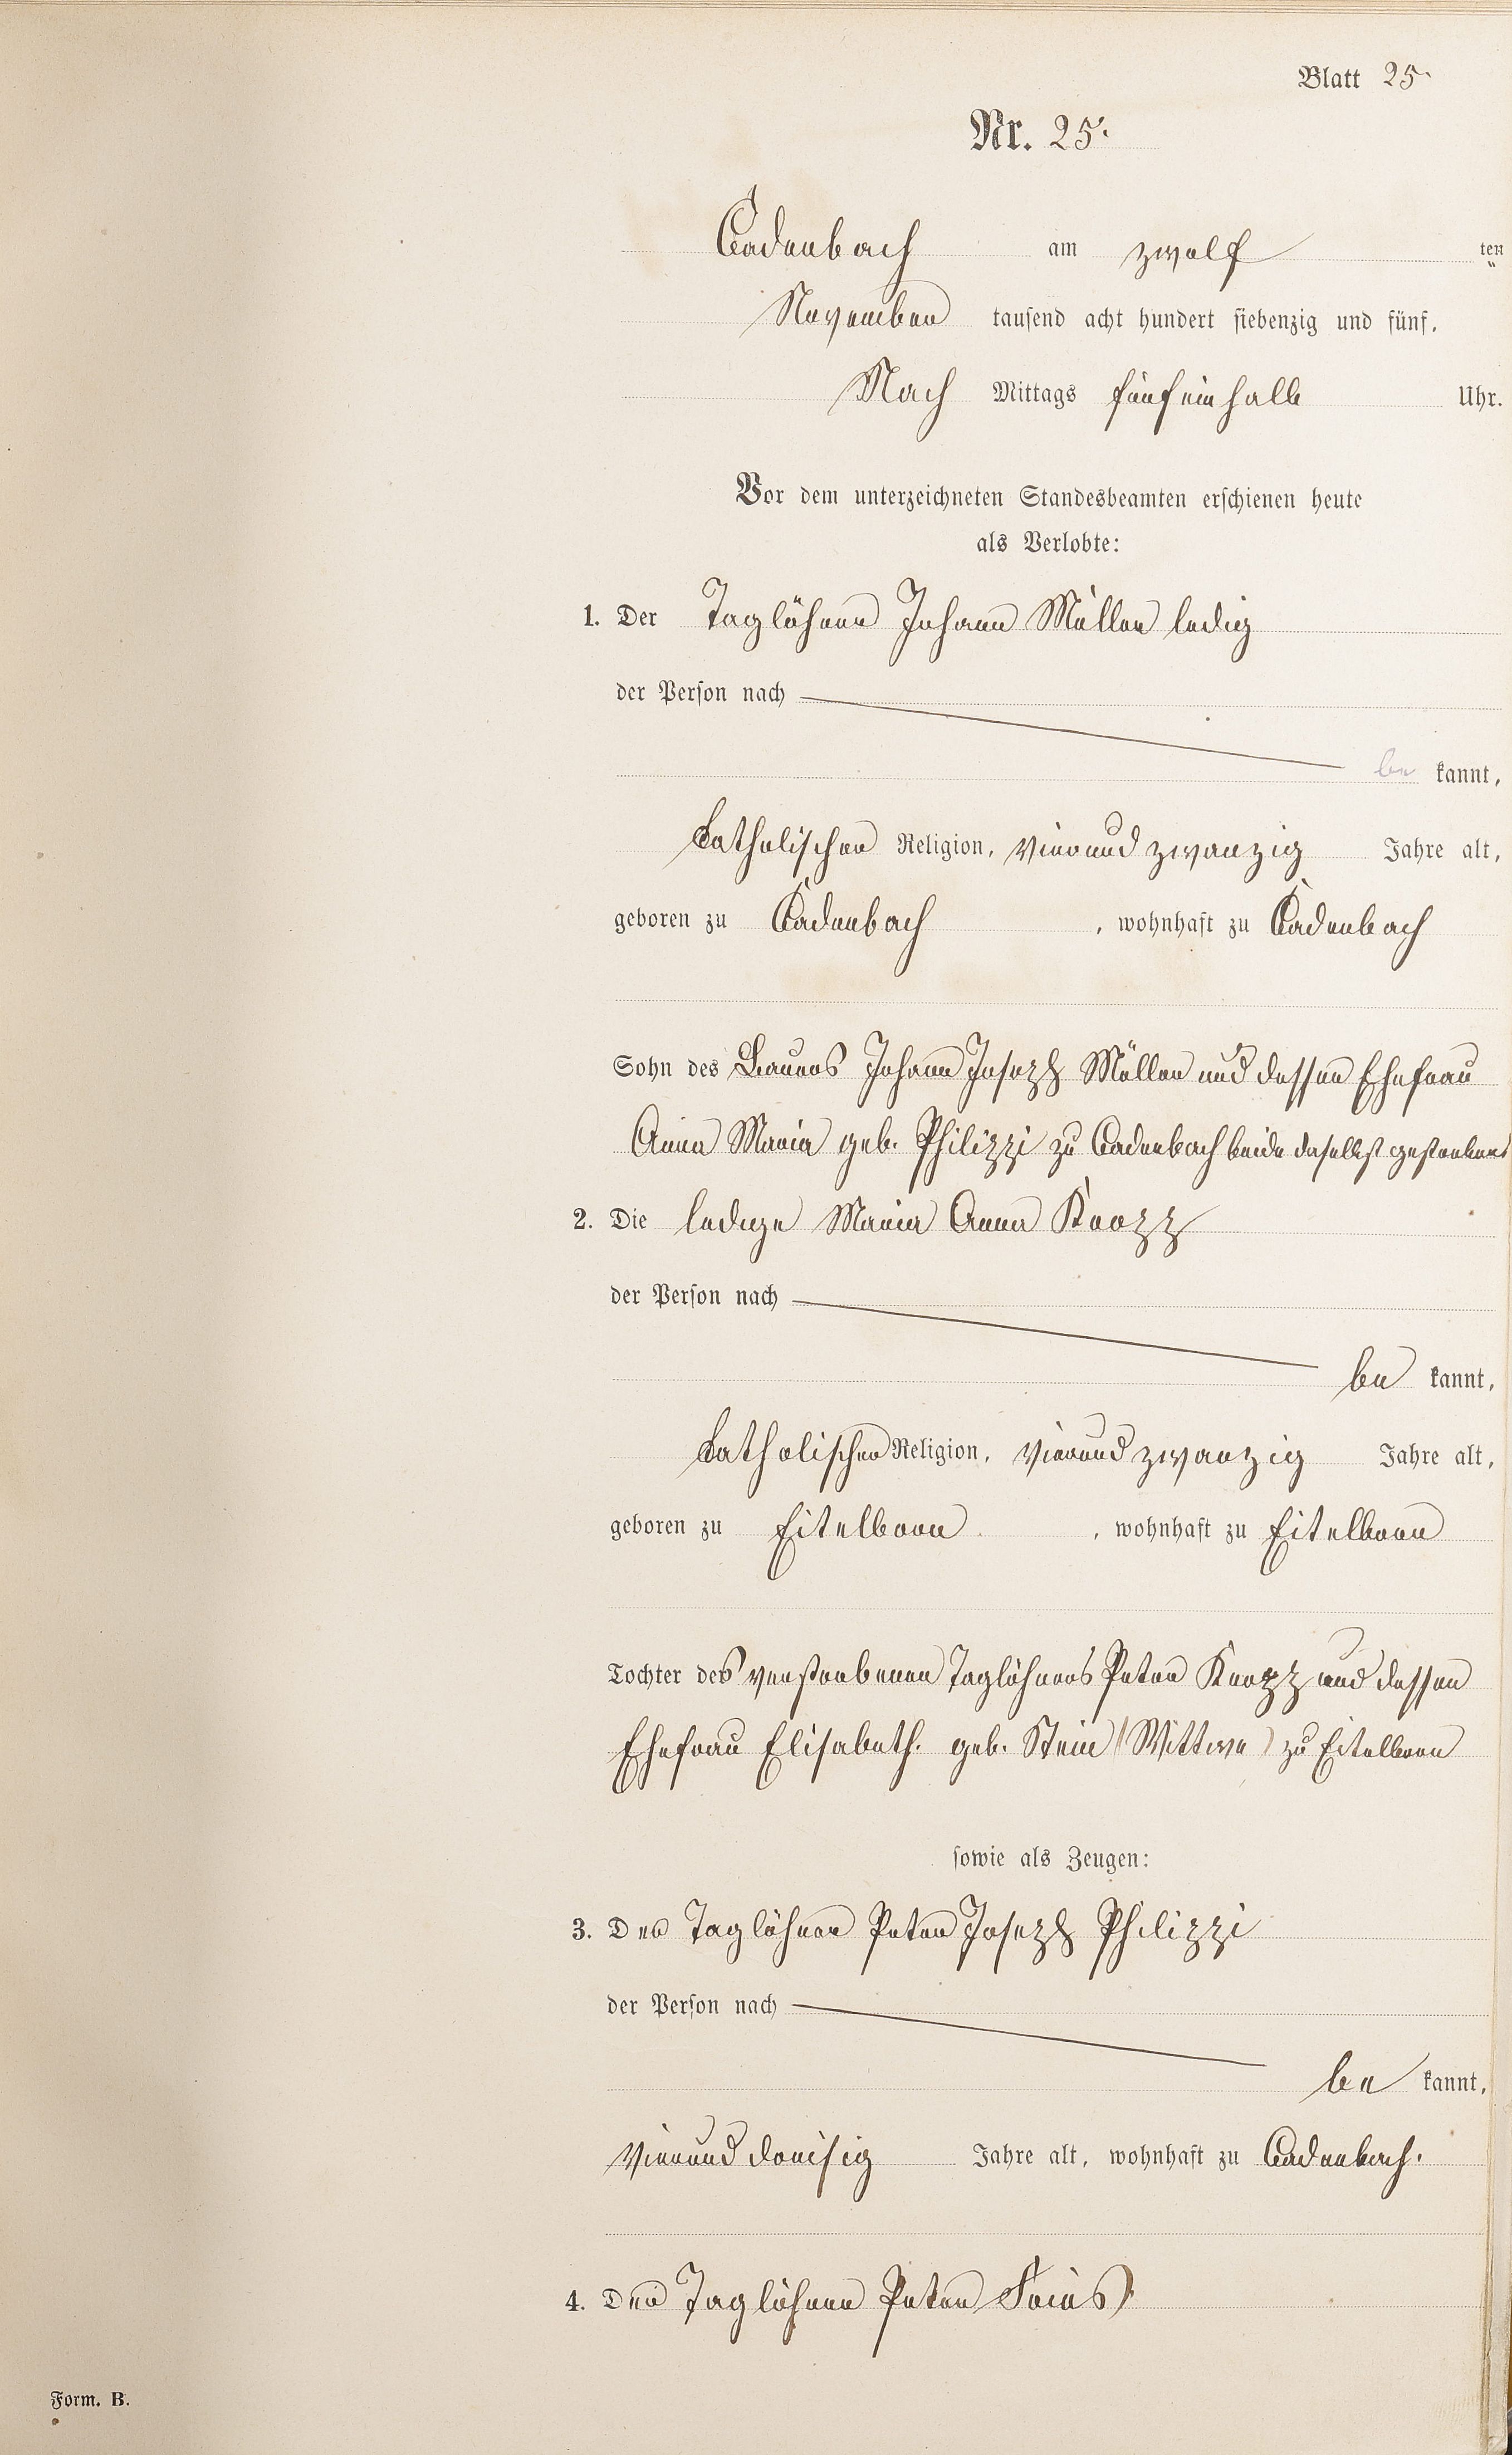 Blatt 25.
Nr. 25.
Cadenbach am zwölf ten
November tausend acht hundert siebenzig und fünf.
Nach Mittags fünfeinhalb Uhr.
Vor dem unterzeichneten Standesbeamten erschienen heute
als Verlobte:
1. Der Taglöhner Johann Müller ledig
der Person nach
be kannt,
katholischer Religion, vierundzwanzig Jahre alt,
geboren zu Cadenbach, wohnhaft zu Cadenbach
Sohn des Bauers Johann Joseph Müller und dessen Ehefrau
Anna Maria geb. Philippi zu Cadenbach beide daselbst gestorben
2. Die ledige Maria Anna Knopp
der Person nach
be kannt,
katholischer Religion, vierundzwanzig Jahre alt,
geboren zu Eitelborn, wohnhaft zu Eitelborn
Tochter des verstorbenen Taglöhners Peter Knopp und dessen
Ehefrau Elisabeth. geb. Stein (Wittwe) zu Eitelborn
sowie als Zeugen:
3. Der Taglöhner Peter Joseph Philippi
der Person nach
be kannt,
vierunddreißig Jahre alt, wohnhaft zu Cadenbach.
4. Der Taglöhner Peter
Form. B.